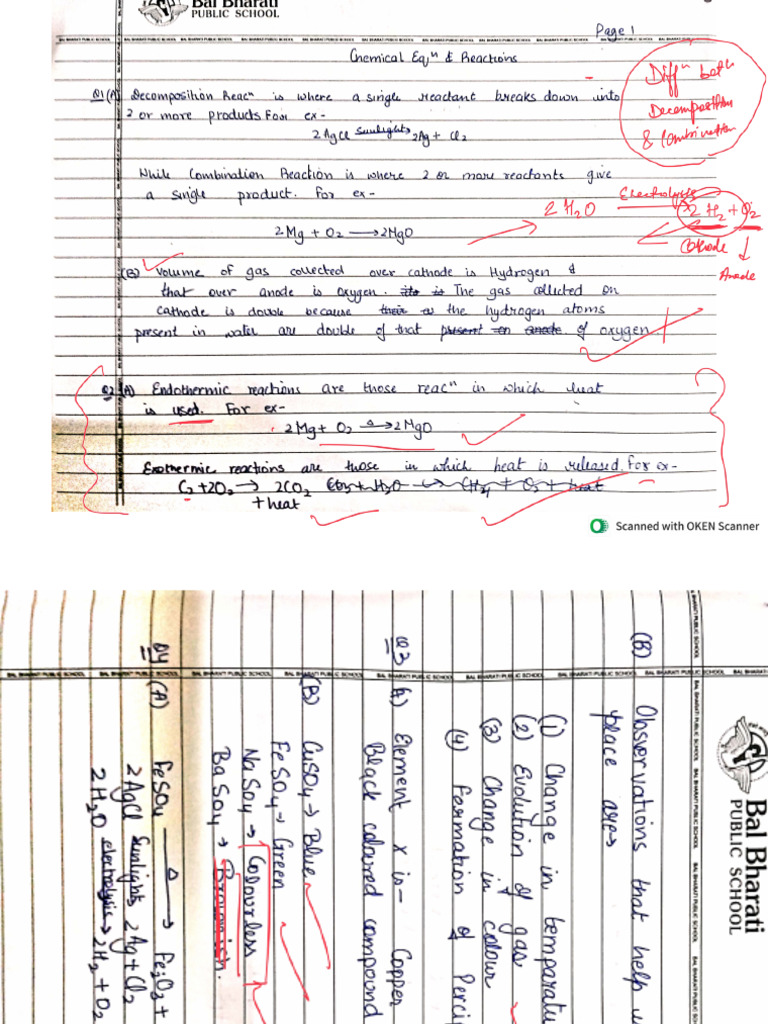 Bal Bharati
PUBLIC SCHOOL
Page 1
Chemical Eqⁿ & Reactions
Diffⁿ bet
Decomposition
& Combination
Q1(A) Decomposition Reacⁿ is where a single reactant breaks down into
2 or more products. For ex-
2AgCl Sunlight→ 2Ag + Cl₂
While Combination Reaction is where 2 or more reactants give
a single product. For ex-
2H₂O Electrolysis 2H₂ + O₂
Cathode
Anode
2Mg + O₂ → 2MgO
(B) Volume of gas collected over cathode is Hydrogen &
that over anode is oxygen. The gas collected on
cathode is double because the hydrogen atoms
present in water are double of that of oxygen
Q2 (A) Endothermic reactions are those reacⁿ in which heat
is used. For ex-
2Mg + O₂ Δ→ 2MgO
Exothermic reactions are those in which heat is released. For ex-
C₂ + 2O₂ → 2CO₂
+ heat
Scanned with OKEN Scanner
Bal Bharati
PUBLIC SCHOOL
(B) Observations that help
place are→
(1) Change in
(2) Evolution of gas
(3) Change in colour
(4) Formation of
Q3 A) Element X is- Copper
Black coloured compound
(B) CuSO₄ → Blue
FeSO₄ → Green
NaSO₄ → Colourless
BaSO₄ → Brownish.
Q4 (A) FeSO₄ Δ→ Fe₂O₃ +
2AgCl Sunlight→ 2Ag + Cl₂
2H₂O electrolysis→ 2H₂ + O₂